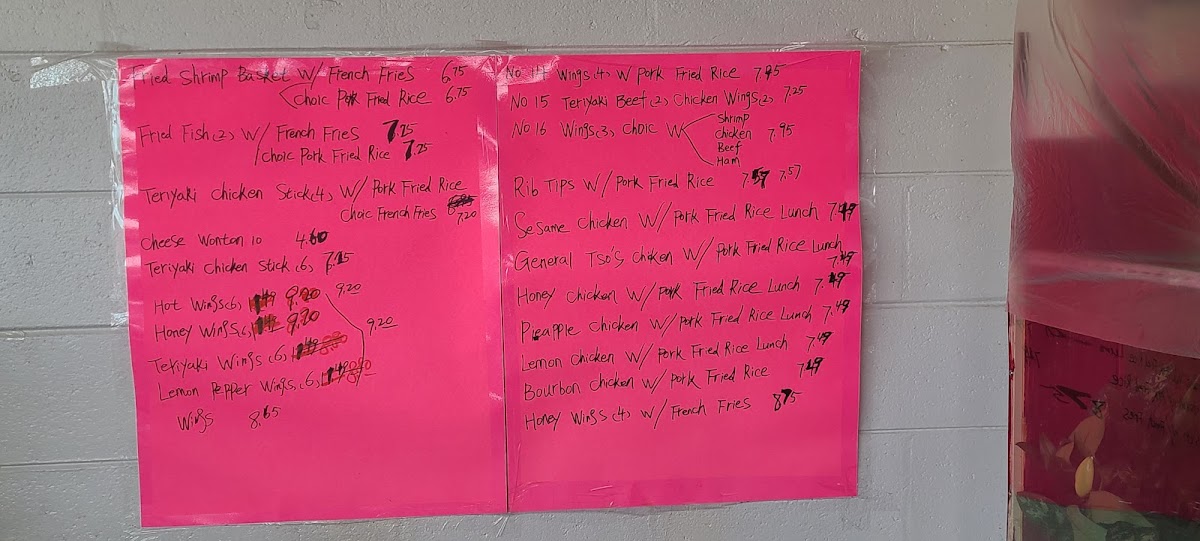 Fried Shrimp Basket W/ French Fries 6.75
Choic Pork Fried Rice 6.75
Fried Fish(2) W/ French Fries 7.25
choic Pork Fried Rice 7.25
Teriyaki Chicken Stick(4) W/ Pork Fried Rice
Choic French Fries 7.20
Cheese Wonton 10 4.60
Teriyaki Chicken Stick (6)
Hot Wings(6) 9.20 9.20
Honey Wings(6) 9.20
9.20
Teriyaki Wings (6)
Lemon Pepper Wings (6)
Wings 8.65
No 14 Wings(4) W Pork Fried Rice 7.95
No 15 Teriyaki Beef(2) Chicken Wings(2) 7.25
No 16 Wings(3) Choic W
Shrimp
Chicken 7.95
Beef
Ham
Rib Tips W/ Pork Fried Rice 7.57
Sesame Chicken W/ Pork Fried Rice Lunch 7.49
General Tso's Chicken W/ Pork Fried Rice Lunch
7.49
Honey Chicken W/ Pork Fried Rice Lunch 7.49
Pieapple Chicken W/ Pork Fried Rice Lunch 7.49
Lemon Chicken W/ Pork Fried Rice Lunch 7.49
Bourbon Chicken W/ Pork Fried Rice 7.49
Honey Wings (4) W/ French Fries 8.75